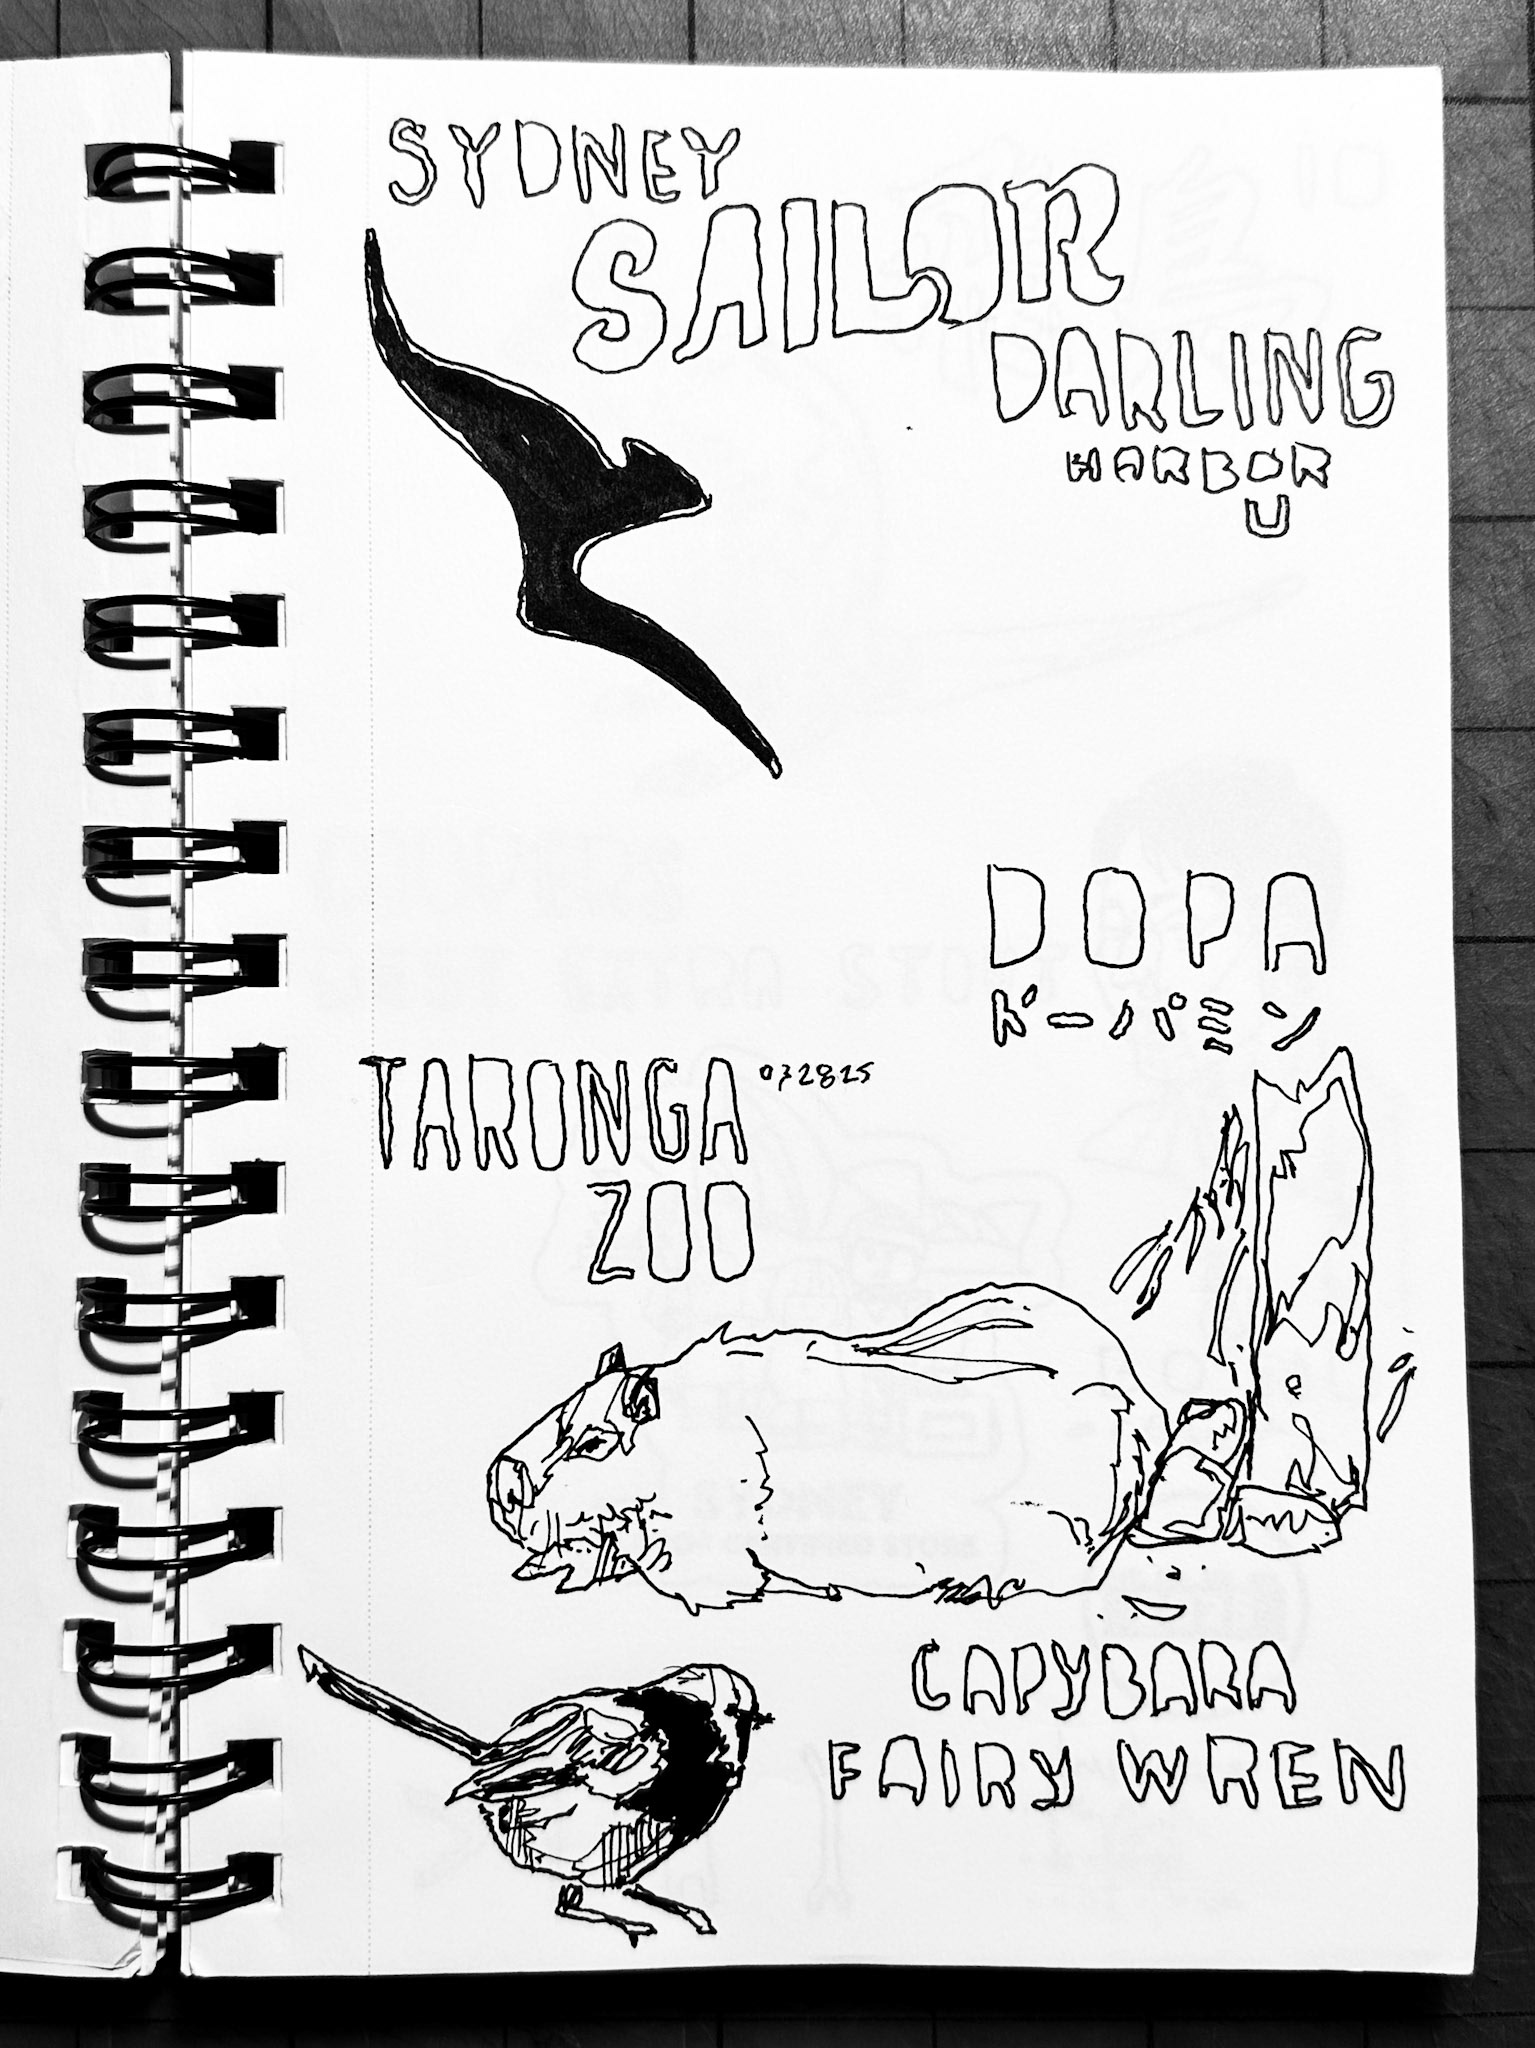 SYDNEY
SAILOR
DARLING
HARBOR
U
DOPA
ドーパミン
TARONGA 072825
ZOO
CAPYBARA
FAIRY WREN